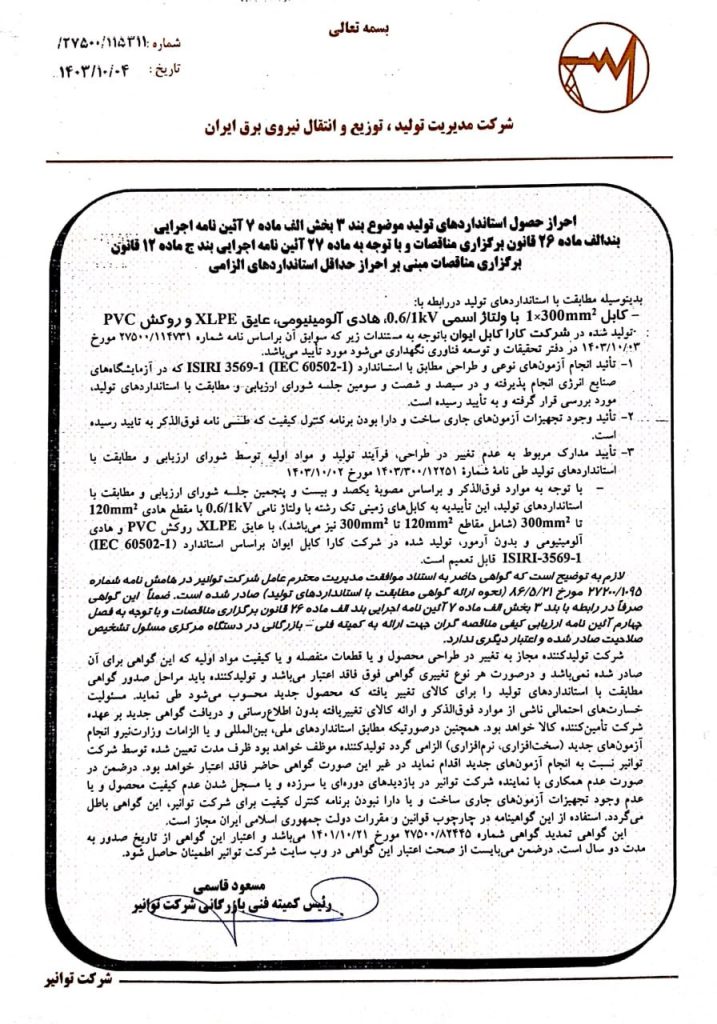 بسمه تعالی
شماره: ۲۷۵۰۰/۱۱۵۳۱۱/
تاریخ: ۱۴۰۳/۱۰/۰۴
شرکت مدیریت تولید ، توزیع و انتقال نیروی برق ایران
احراز حصول استانداردهای تولید موضوع بند ۳ بخش الف ماده ۷ آئین نامه اجرایی
بندالف ماده ۲۶ قانون برگزاری مناقصات و با توجه به ماده ۲۷ آئین نامه اجرایی بند ج ماده ۱۲ قانون
برگزاری مناقصات مبنی بر احراز حداقل استانداردهای الزامی
بدینوسیله مطابقت با استانداردهای تولید دررابطه با:
– کابل 1×300mm² با ولتاژ اسمی 0.6/1kV، هادی آلومینیومی، عایق XLPE و روکش PVC
تولید شده در شرکت کارا کابل ایوان باتوجه به مستندات زیر که سوابق آن براساس نامه شماره ۲۷۵۰۰/۱۱۴۷۳۱ مورخ
۱۴۰۳/۱۰/۰۳ در دفتر تحقیقات و توسعه فناوری نگهداری می‌شود مورد تأیید می‌باشد.
۱– تأئید انجام آزمون‌های نوعی و طراحی مطابق با استاندارد ISIRI 3569-1 (IEC 60502-1) که در آزمایشگاه‌های
صنایع انرژی انجام پذیرفته و در سیصد و شصت و سومین جلسه شورای ارزیابی و مطابقت با استانداردهای تولید،
مورد بررسی قرار گرفته و به تأیید رسیده است.
۲– تأئید وجود تجهیزات آزمون‌های جاری ساخت و دارا بودن برنامه کنترل کیفیت که طی نامه فوق‌الذکر به تایید رسیده
است.
۳– تأیید مدارک مربوط به عدم تغییر در طراحی، فرآیند تولید و مواد اولیه توسط شورای ارزیابی و مطابقت با
استانداردهای تولید طی نامهٔ شمارهٔ ۱۴۰۳/۳۰۰/۱۲۲۵۱ مورخ ۱۴۰۳/۱۰/۰۲
– با توجه به موارد فوق‌الذکر و براساس مصوبهٔ یکصد و بیست و پنجمین جلسه شورای ارزیابی و مطابقت با
استانداردهای تولید، این تأییدیه به کابل‌های زمینی تک رشته با ولتاژ نامی 0.6/1kV با مقطع هادی 120mm²
تا 300mm² (شامل مقاطع 120mm² تا 300mm² نیز می‌باشد)، با عایق XLPE، روکش PVC و هادی
آلومینیومی و بدون آرمور، تولید شده در شرکت کارا کابل ایوان براساس استاندارد (IEC 60502-1)
ISIRI-3569-1 قابل تعمیم است.
لازم به توضیح است که گواهی حاضر به استناد موافقت مدیریت محترم عامل شرکت توانیر در هامش نامه شماره
۲۷۰۰/۱۰۹۵ مورخ ۸۶/۵/۲۱ (نحوه ارائه گواهی مطابقت با استانداردهای تولید) صادر شده است. ضمناً این گواهی
صرفاً در رابطه با بند ۳ بخش الف ماده ۷ آئین نامه اجرایی بند الف ماده ۲۶ قانون برگزاری مناقصات و با توجه به فصل
چهارم آئین نامه ارزیابی کیفی مناقصه گران جهت ارائه به کمیته فنی – بازرگانی در دستگاه مرکزی مسئول تشخیص
صلاحیت صادر شده و اعتبار دیگری ندارد.
شرکت تولیدکننده مجاز به تغییر در طراحی محصول و یا قطعات منفصله و یا کیفیت مواد اولیه که این گواهی برای آن
صادر شده نمی‌باشد و درصورت هر نوع تغییری گواهی فوق فاقد اعتبار می‌باشد و تولیدکننده باید مراحل صدور گواهی
مطابقت با استانداردهای تولید را برای کالای تغییر یافته که محصول جدید محسوب می‌شود طی نماید. مسئولیت
خسارت‌های احتمالی ناشی از موارد فوق‌الذکر و ارائه کالای تغییریافته بدون اطلاع‌رسانی و دریافت گواهی جدید بر عهده
شرکت تأمین‌کننده کالا خواهد بود. همچنین درصورتیکه مطابق استانداردهای ملی، بین‌المللی و یا الزامات وزارت‌نیرو انجام
آزمون‌های جدید (سخت‌افزاری، نرم‌افزاری) الزامی گردد تولیدکننده موظف خواهد بود ظرف مدت تعیین شده توسط شرکت
توانیر نسبت به انجام آزمون‌های جدید اقدام نماید در غیر این صورت گواهی حاضر فاقد اعتبار خواهد بود. درضمن در
صورت عدم همکاری با نماینده شرکت توانیر در بازدیدهای دوره‌ای یا سرزده و یا مسجل شدن عدم کیفیت محصول و یا
عدم وجود تجهیزات آزمون‌های جاری ساخت و یا دارا نبودن برنامه کنترل کیفیت برای شرکت توانیر، این گواهی باطل
می‌گردد. استفاده از این گواهینامه در چارچوب قوانین و مقررات دولت جمهوری اسلامی ایران مجاز است.
این گواهی تمدید گواهی شماره ۲۷۵۰۰/۸۲۴۴۵ مورخ ۱۴۰۱/۱۰/۲۱ می‌باشد و اعتبار این گواهی از تاریخ صدور به
مدت دو سال است. درضمن می‌بایست از صحت اعتبار این گواهی در وب سایت شرکت توانیر اطمینان حاصل شود.
مسعود قاسمی
رئیس کمیته فنی بازرگانی شرکت توانیر
شرکت توانیر